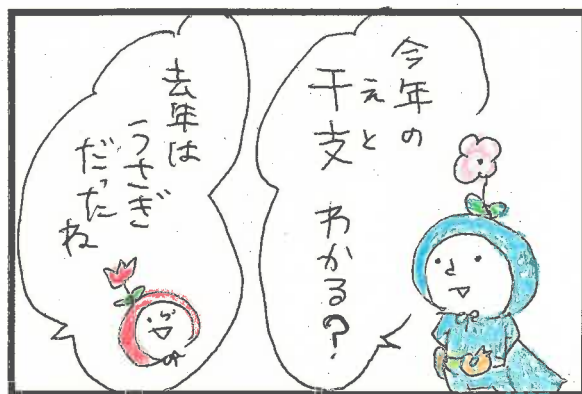 今年の
えと
干支 わかる?
去年は
うさぎ
だったね